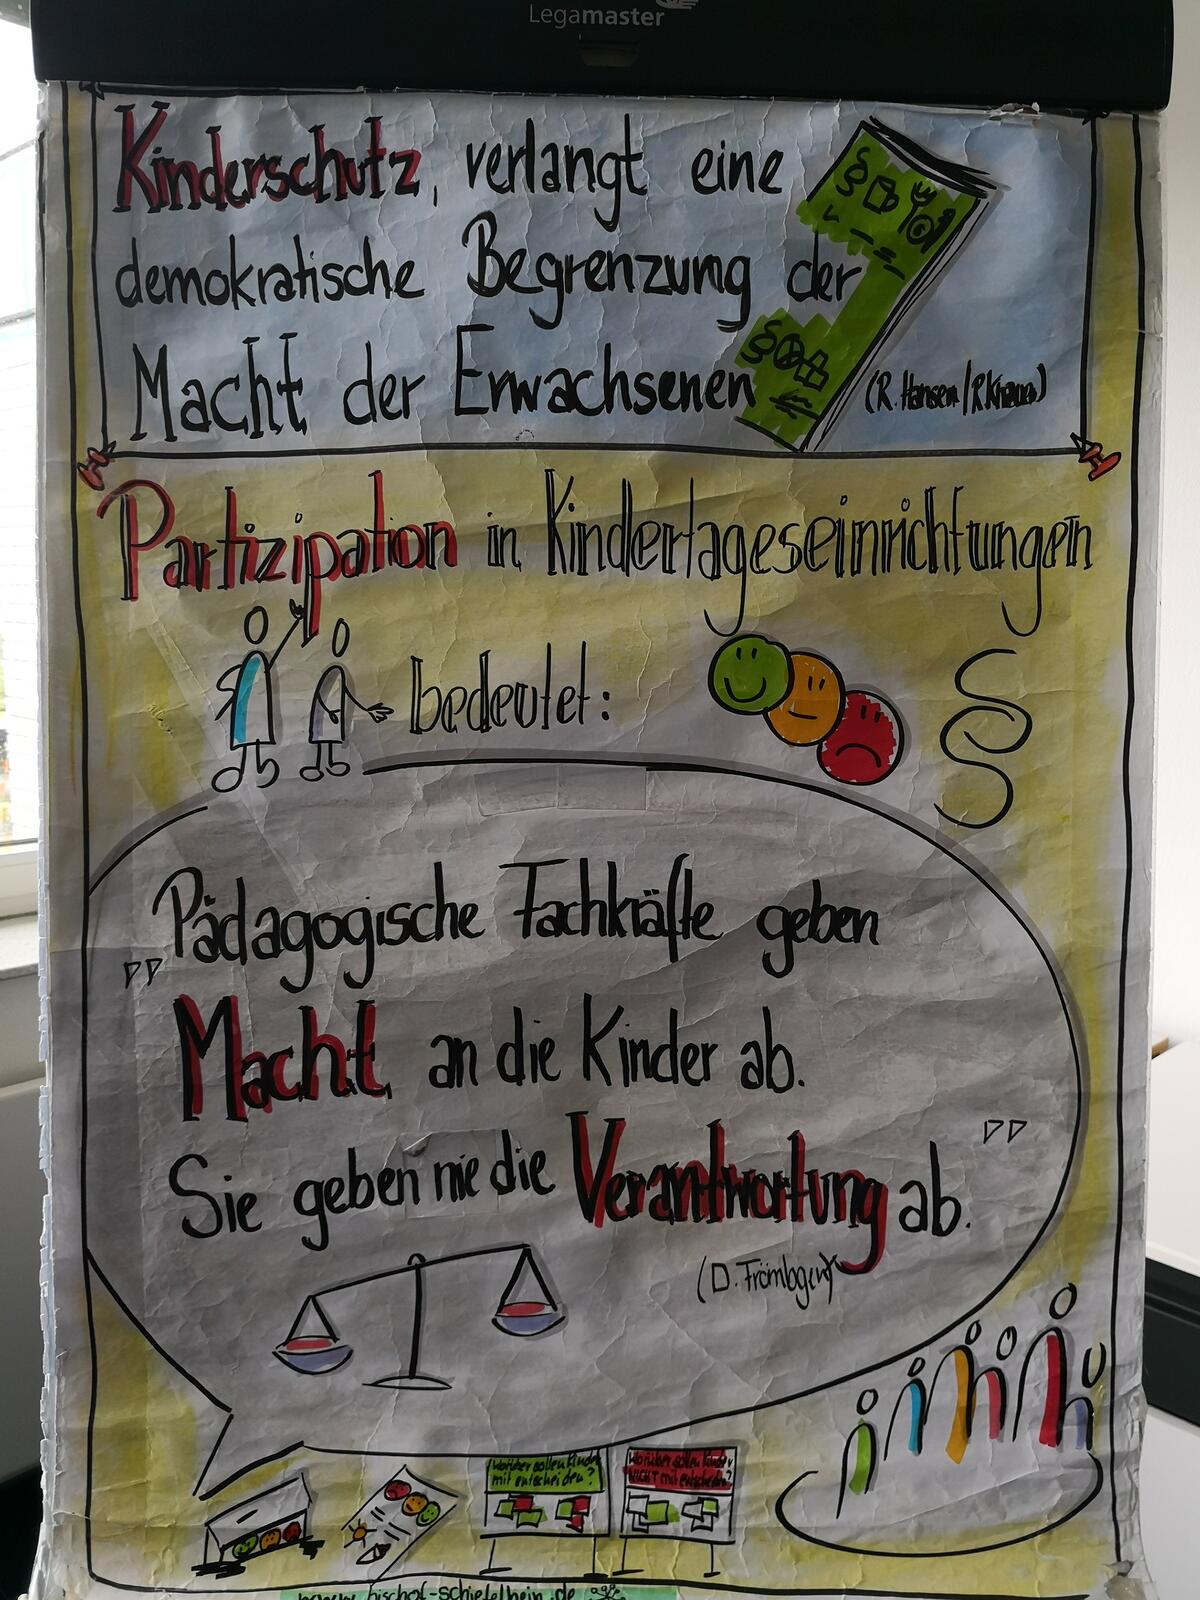 Legamaster
Kinderschutz, verlangt eine
demokratische Begrenzung der
Macht der Erwachsenen
(R. Hansen/R. Knauer)
Partizipation in Kindertageseinrichtungen
bedeutet:
§
"Pädagogische Fachkräfte geben
Macht an die Kinder ab.
Sie geben nie die Verantwortung ab."
(D. Frömbgen)
Worüber sollen Kinder
mit entscheiden?
Worüber sollen Kinder
NICHT mit entscheiden?
bischof-schiefelbein.de